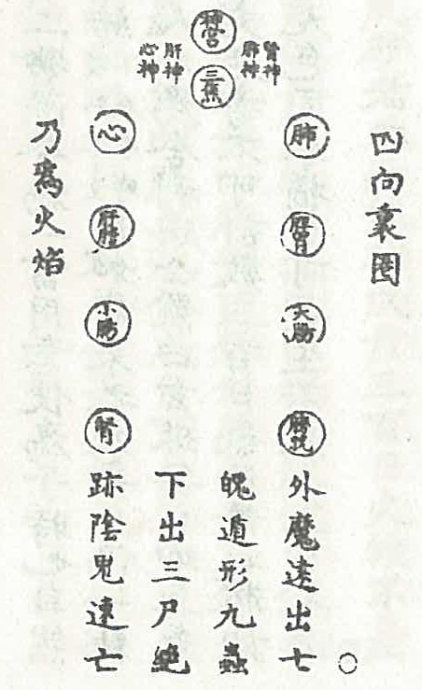 四向裏圈
神宮
三焦
腎神
肺神
肝神
心神
肺
脾胃
大腸
膀胱
心
肝膽
小腸
腎
外魔遠出七
魄遁形九蟲
下出三尸絶
跡陰鬼速亡
乃爲火焰